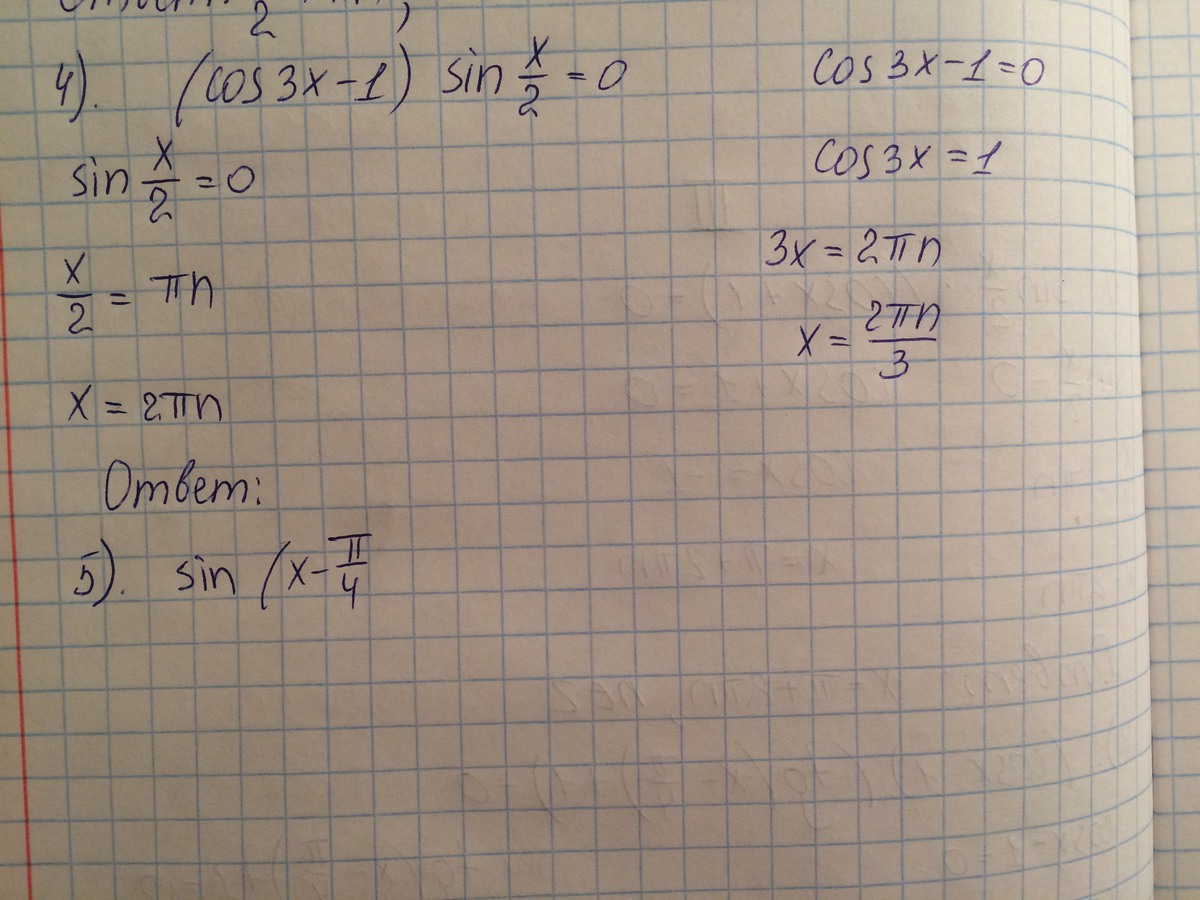 4). (cos 3x - 1) sin x/2 = 0
cos 3x - 1 = 0
sin x/2 = 0
cos 3x = 1
x/2 = πn
3x = 2πn
x = 2πn/3
x = 2πn
Ответ:
5). sin (x - π/4